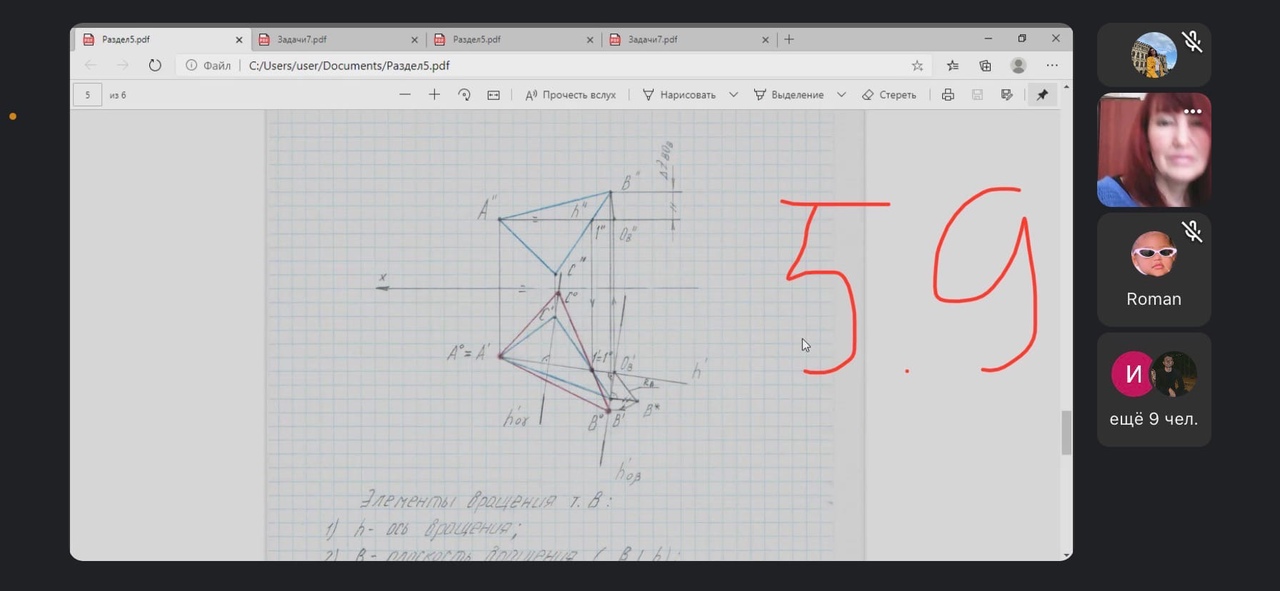 Раздел5.pdf
Задачи7.pdf
Раздел5.pdf
Задачи7.pdf
Файл
C:/Users/user/Documents/Раздел5.pdf
5
из 6
Прочесть вслух
Нарисовать
Выделение
Стереть
B"
A"
h"
1"
OB"
C"
x
C°
C'
A°=A'
1'=1°
OB'
h'
RB
B*
B°
B'
h'oγ
h'oβ
5.9
Элементы вращения т. B:
1) h - ось вращения;
2) β - плоскость вращения
Roman
И
ещё 9 чел.